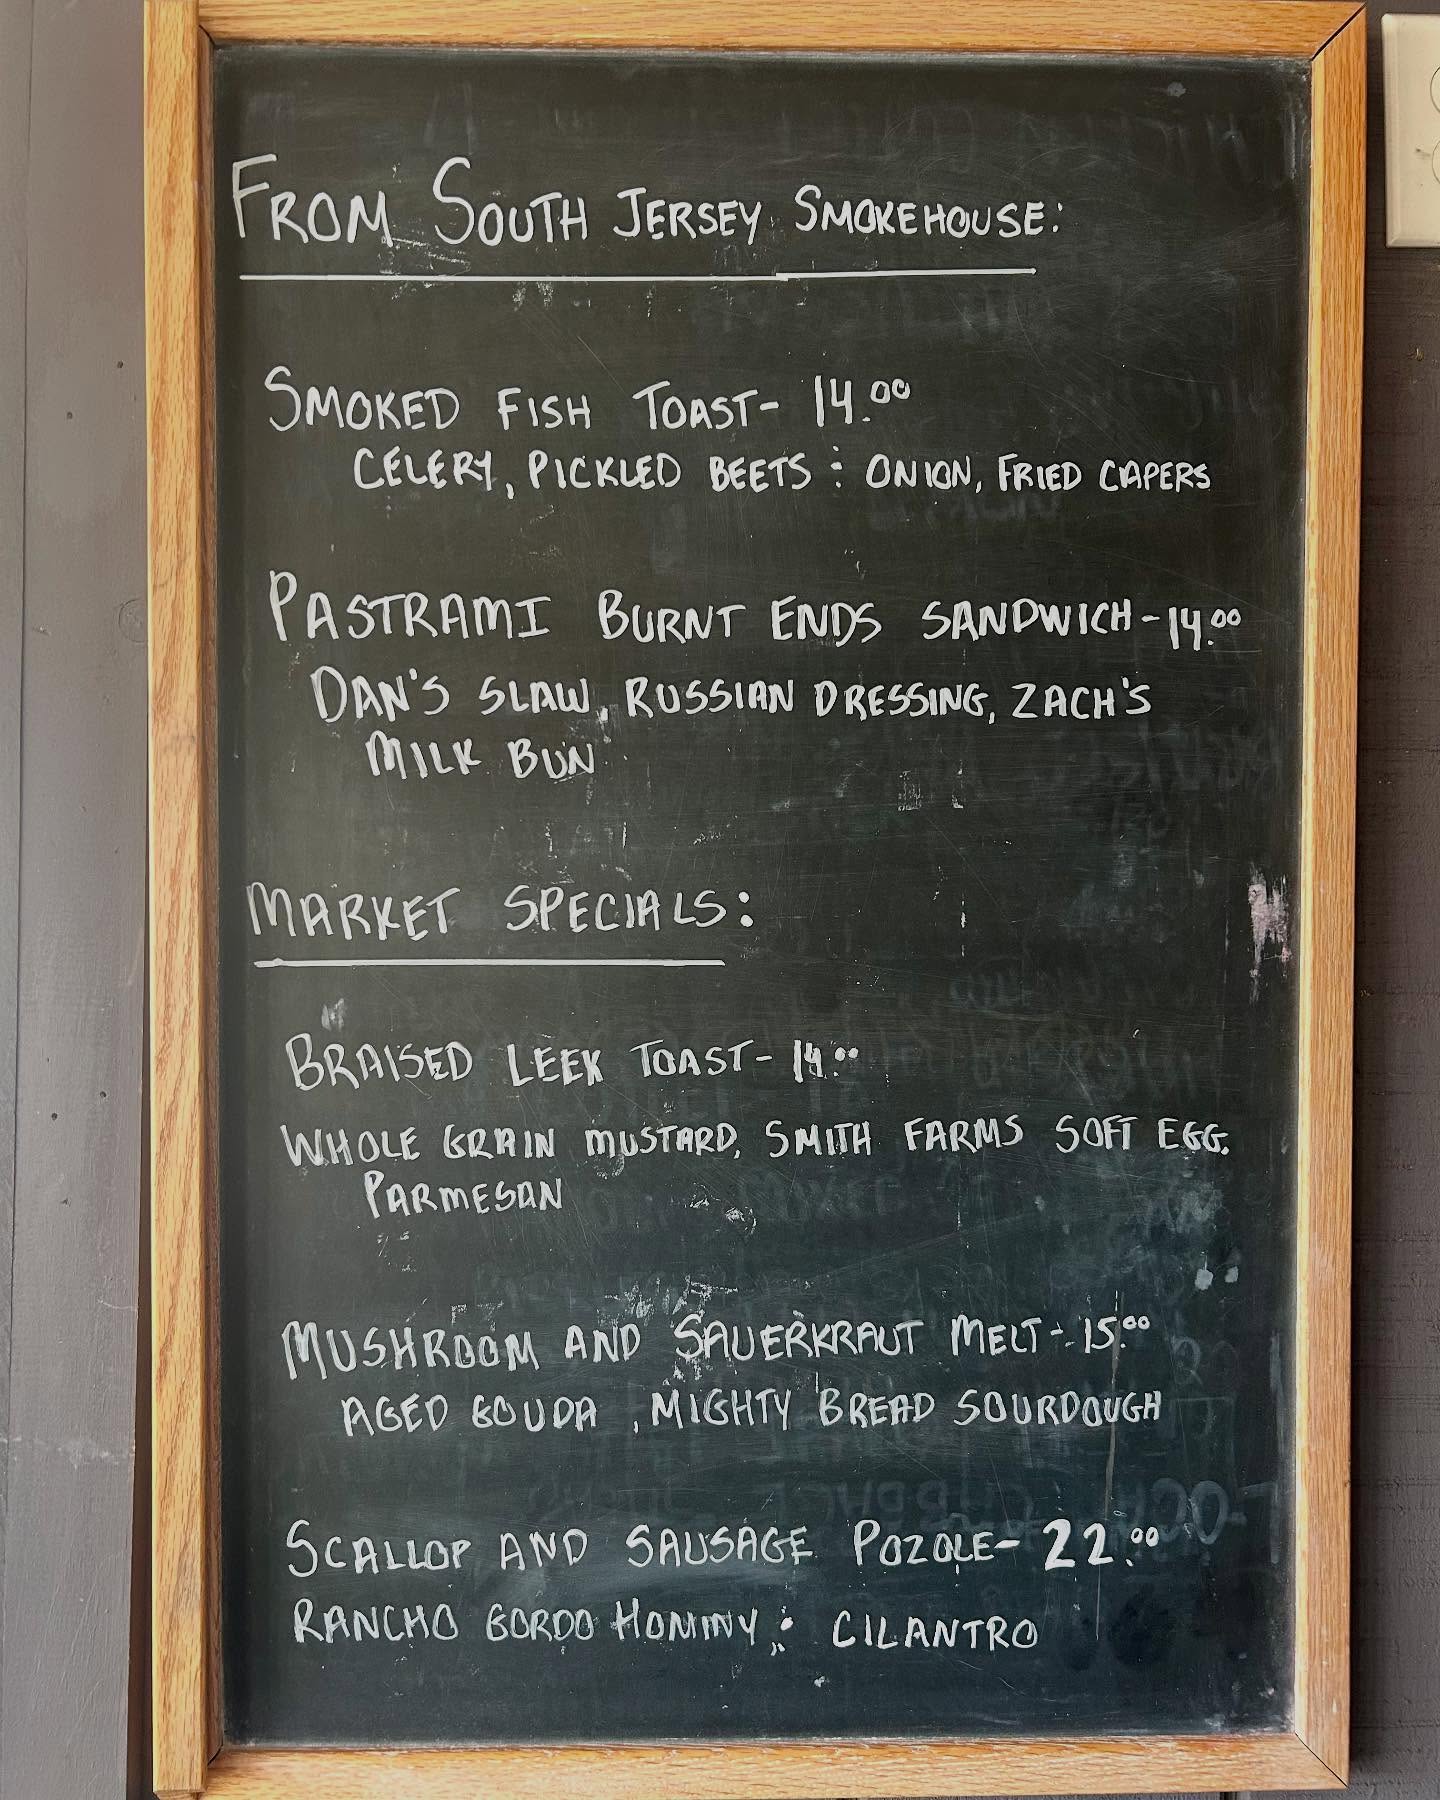 FROM SOUTH JERSEY SMOKEHOUSE:
SMOKED FISH TOAST- 14.00
CELERY, PICKLED BEETS : ONION, FRIED CAPERS
PASTRAMI BURNT ENDS SANDWICH-14.00
DAN'S SLAW, RUSSIAN DRESSING, ZACH'S
MILK BUN
MARKET SPECIALS:
BRAISED LEEK TOAST- 14.00
WHOLE GRAIN MUSTARD, SMITH FARMS SOFT EGG,
PARMESAN
MUSHROOM AND SAUERKRAUT MELT- 15.00
AGED GOUDA , MIGHTY BREAD SOURDOUGH
SCALLOP AND SAUSAGE POZOLE- 22.00
RANCHO GORDO HOMINY : CILANTRO